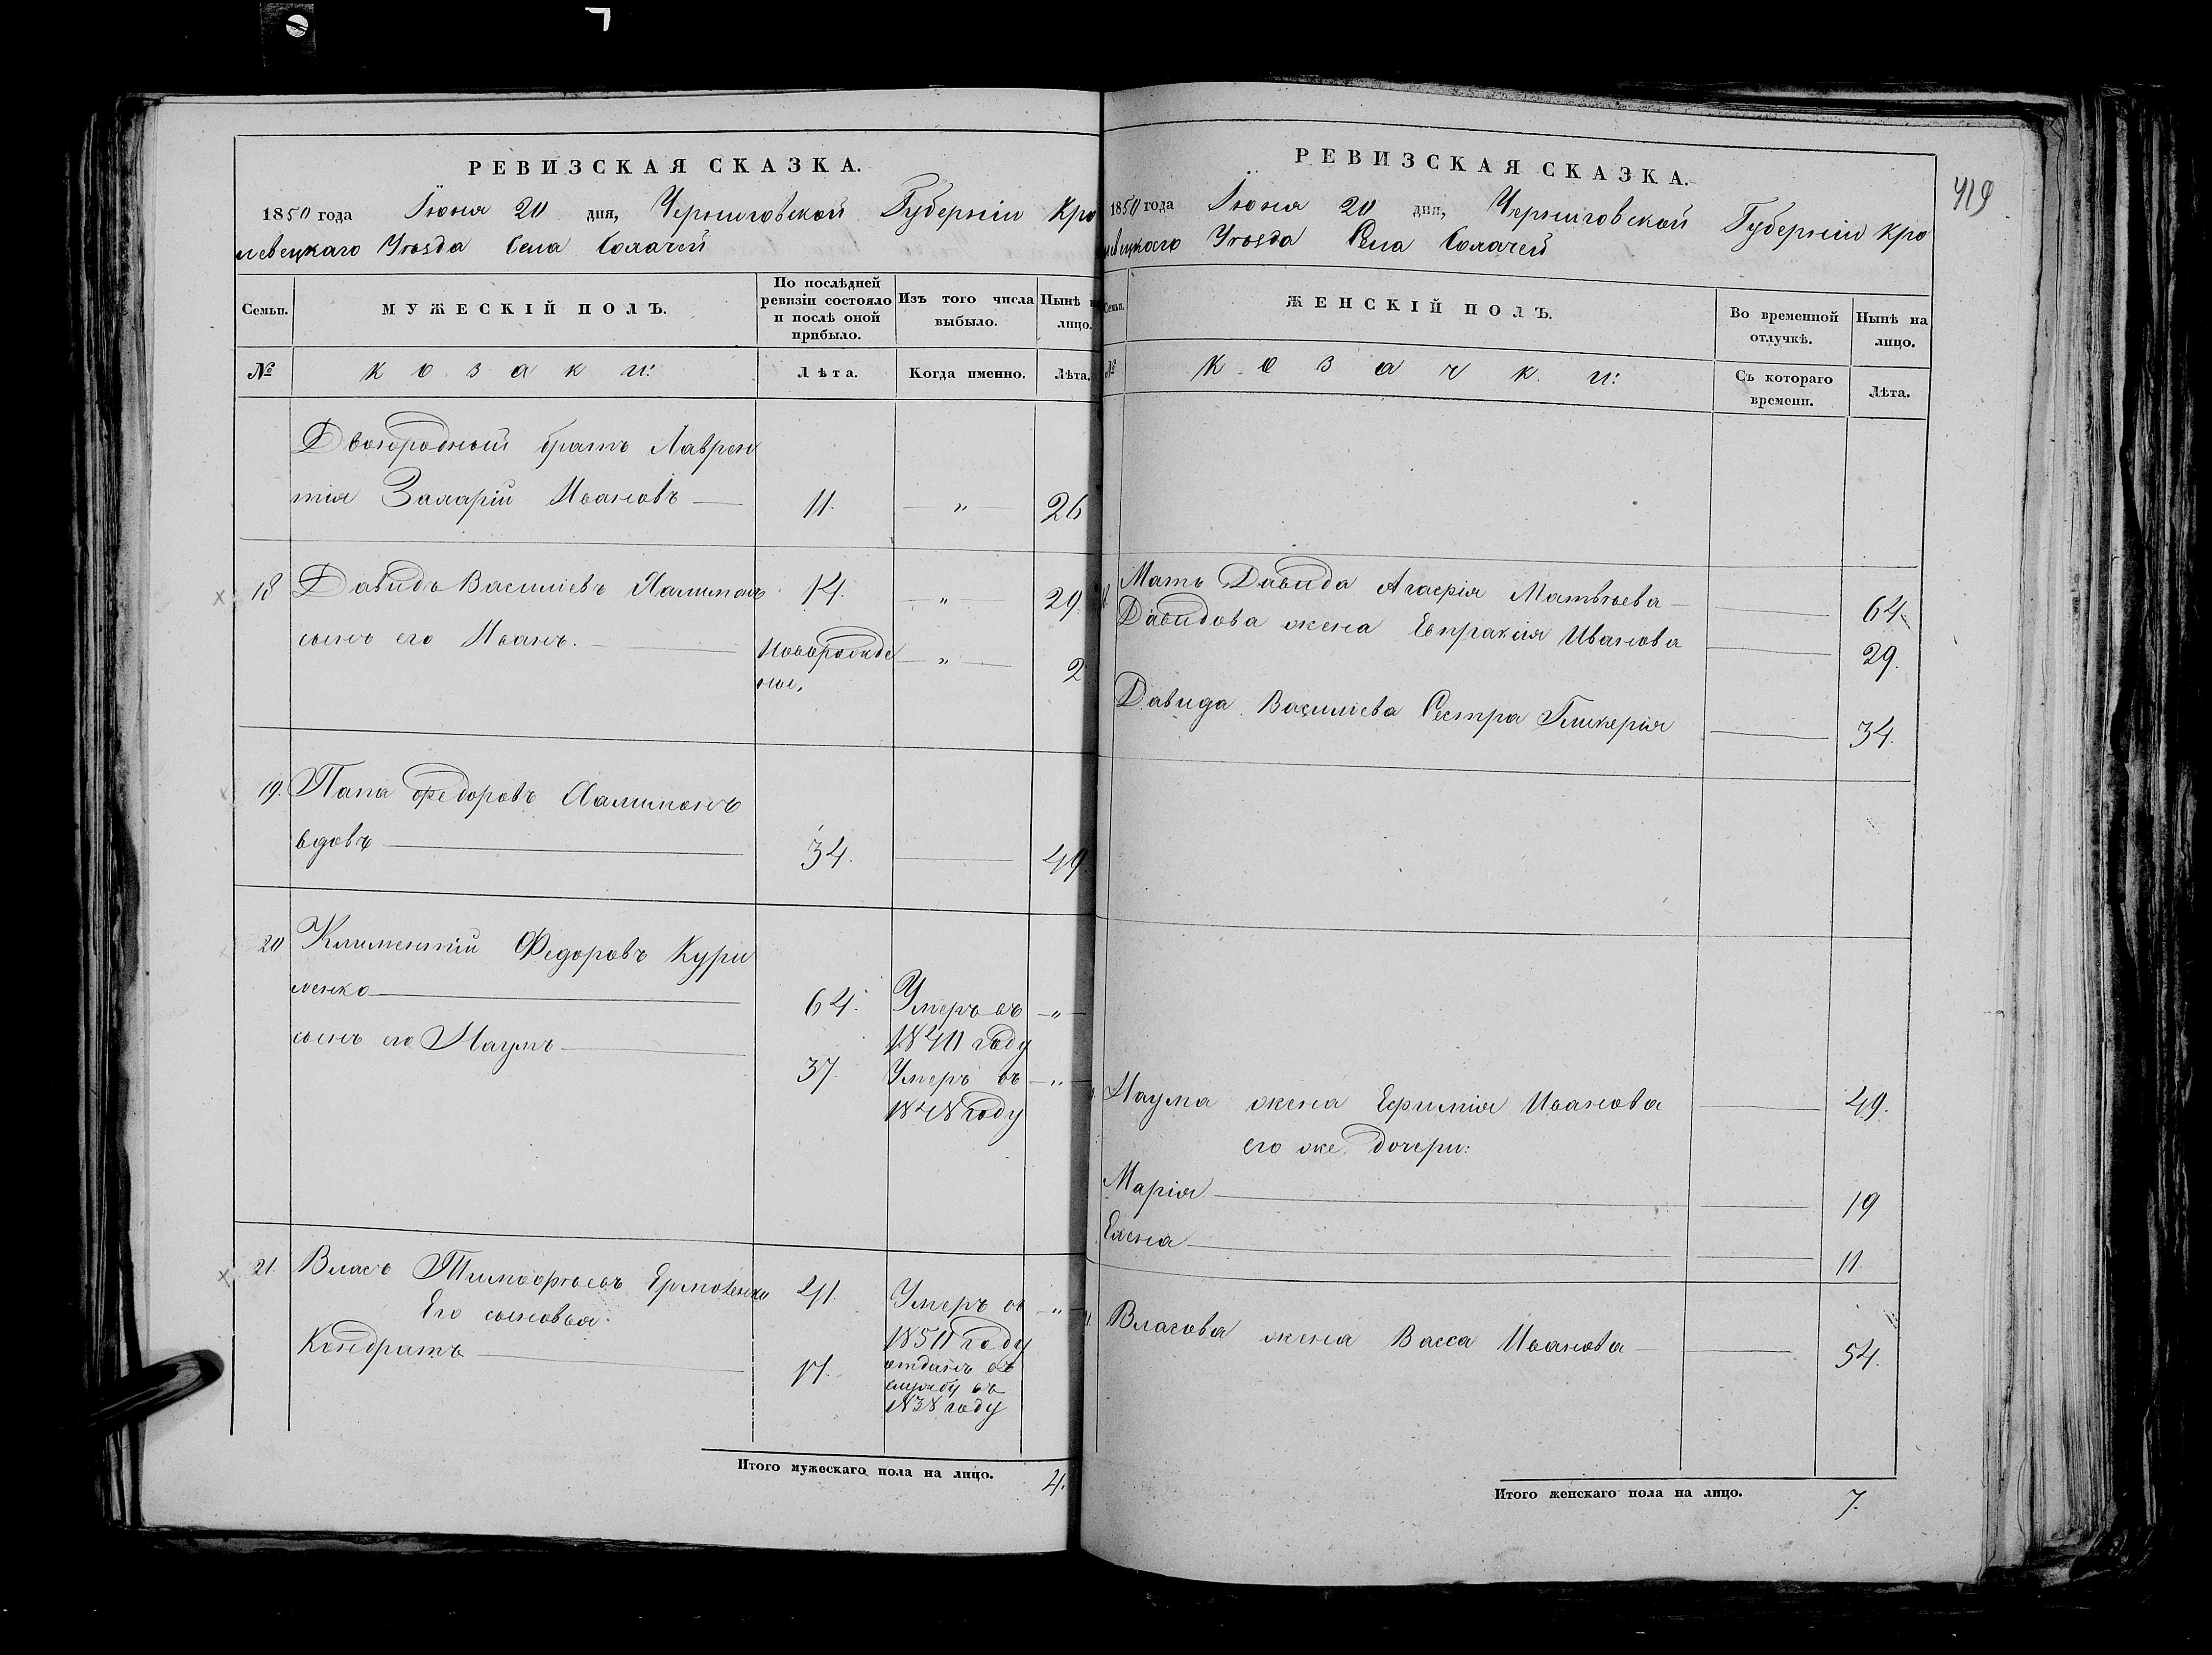 РЕВИЗСКАЯ СКАЗКА.
1850 года Іюня 20 дня, Черниговской Губерніи Кро
левецкаго Уѣзда Села
Семьи.
МУЖЕСКІЙ ПОЛЪ.
По послѣдней
ревизіи состояло
и послѣ оной
прибыло.
Изъ того числа
выбыло.
Нынѣ
лицо.
№
козаки:
Лѣта.
Когда именно.
Лѣта.
Двоюродный братъ Лаврен
тія Ивановъ — 11. — „ — 26
18 Давидъ Василіевъ 14. — „ — 29.
сынъ его Иванъ. — Новорожде — „ — 2
ный.
19. Федоровъ
вдовъ — 34. — 49
20 Климентій Федоровъ Кури
ленко — 64. Умеръ въ — „ —
1840 году
сынъ его Наумъ — 37. Умеръ въ — „ —
1848 году
21. Власъ Тимофѣевъ 41. Умеръ въ — „ —
Его сыновья: 1850 году
Кондратъ — отданъ въ
службу въ
1838 году
Итого мужескаго пола на лицо. 4.
РЕВИЗСКАЯ СКАЗКА.
419
1850 года Іюня 20 дня, Черниговской Губерніи Кро
левецкаго Уѣзда Села
Семьи.
ЖЕНСКІЙ ПОЛЪ.
Во временной
отлучкѣ.
Нынѣ на
лицо.
№
козачки:
Съ котораго
времени.
Лѣта.
Мать Давида Матвѣева — 64.
Давидова жена Евпраксія Иванова — 29.
Давида Василіева Сестра Гликерія — 34.
Наума жена Ефимія Иванова — 49.
его же дочери:
Марія — 19
Елена — 11.
Власова жена Васса Иванова — 54.
Итого женскаго пола на лицо. 7.